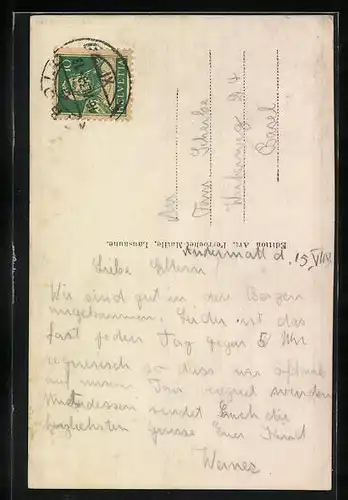 HELVETIA
An
Fam. Scherbe
Basel
Edition Art. Perrochet-Matile, Lausanne.
Andermatt d. 15. VIII
Liebe Eltern!
Wir sind gut in den Bergen
angekommen. Leider ist das
fast jeden Tag gegen 5 Uhr
regnerisch so dass wir oftmals
auf unserer Tour
Unterdessen sendet Euch die
herzlichsten Grüsse Euer Kind
Werner